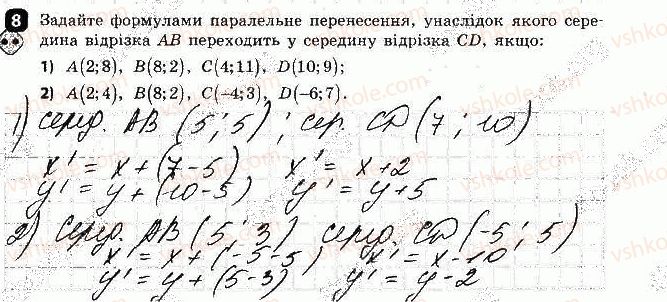 8 Задайте формулами паралельне перенесення, унаслідок якого сере-
дина відрізка AB переходить у середину відрізка CD, якщо:
1) A(2;8), B(8;2), C(4;11), D(10;9);
2) A(2;4), B(8;2), C(–4;3), D(–6;7).
1) серед. AB (5;5); сер. CD (7;10)
x' = x + (7-5) x' = x+2
y' = y + (10-5) y' = y+5
2) Серед. AB (5;3) серед. CD (-5;5)
x' = x + (-5-5) x' = x-10
y' = y + (5-3) y' = y-2